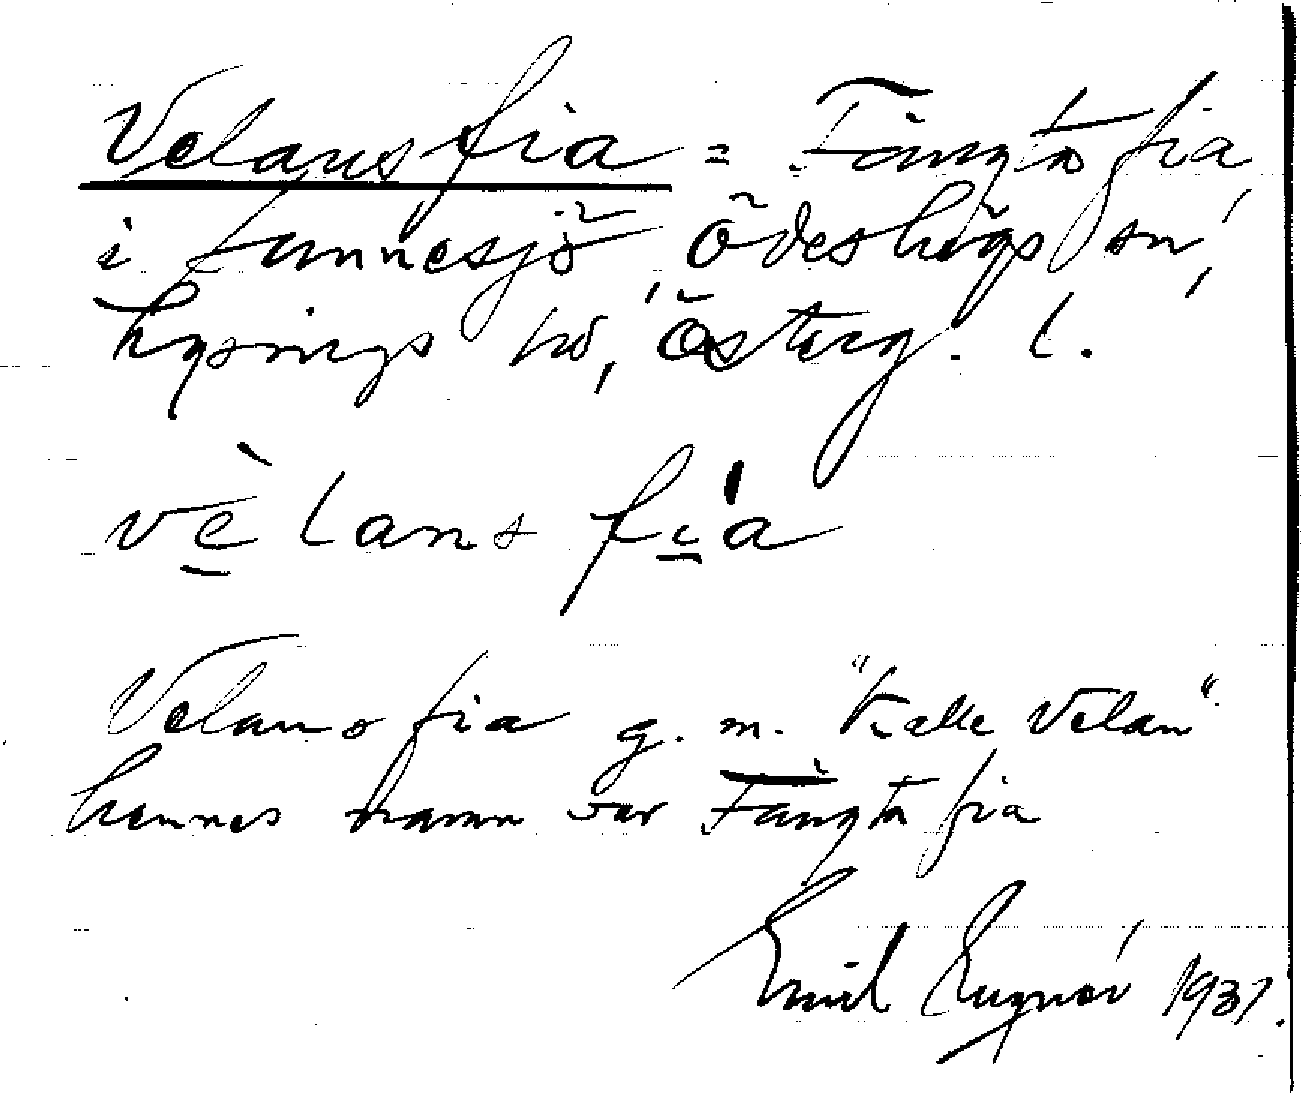 Velans fia = Fångta fia
i Narnnesjö, Ödeshögs sn,
Lysings hd, Österg. l.
vè lans fi'a
Velans fia g. m. "Kalle Velan"
hennes namn var Fångta fia
Emil 1931.